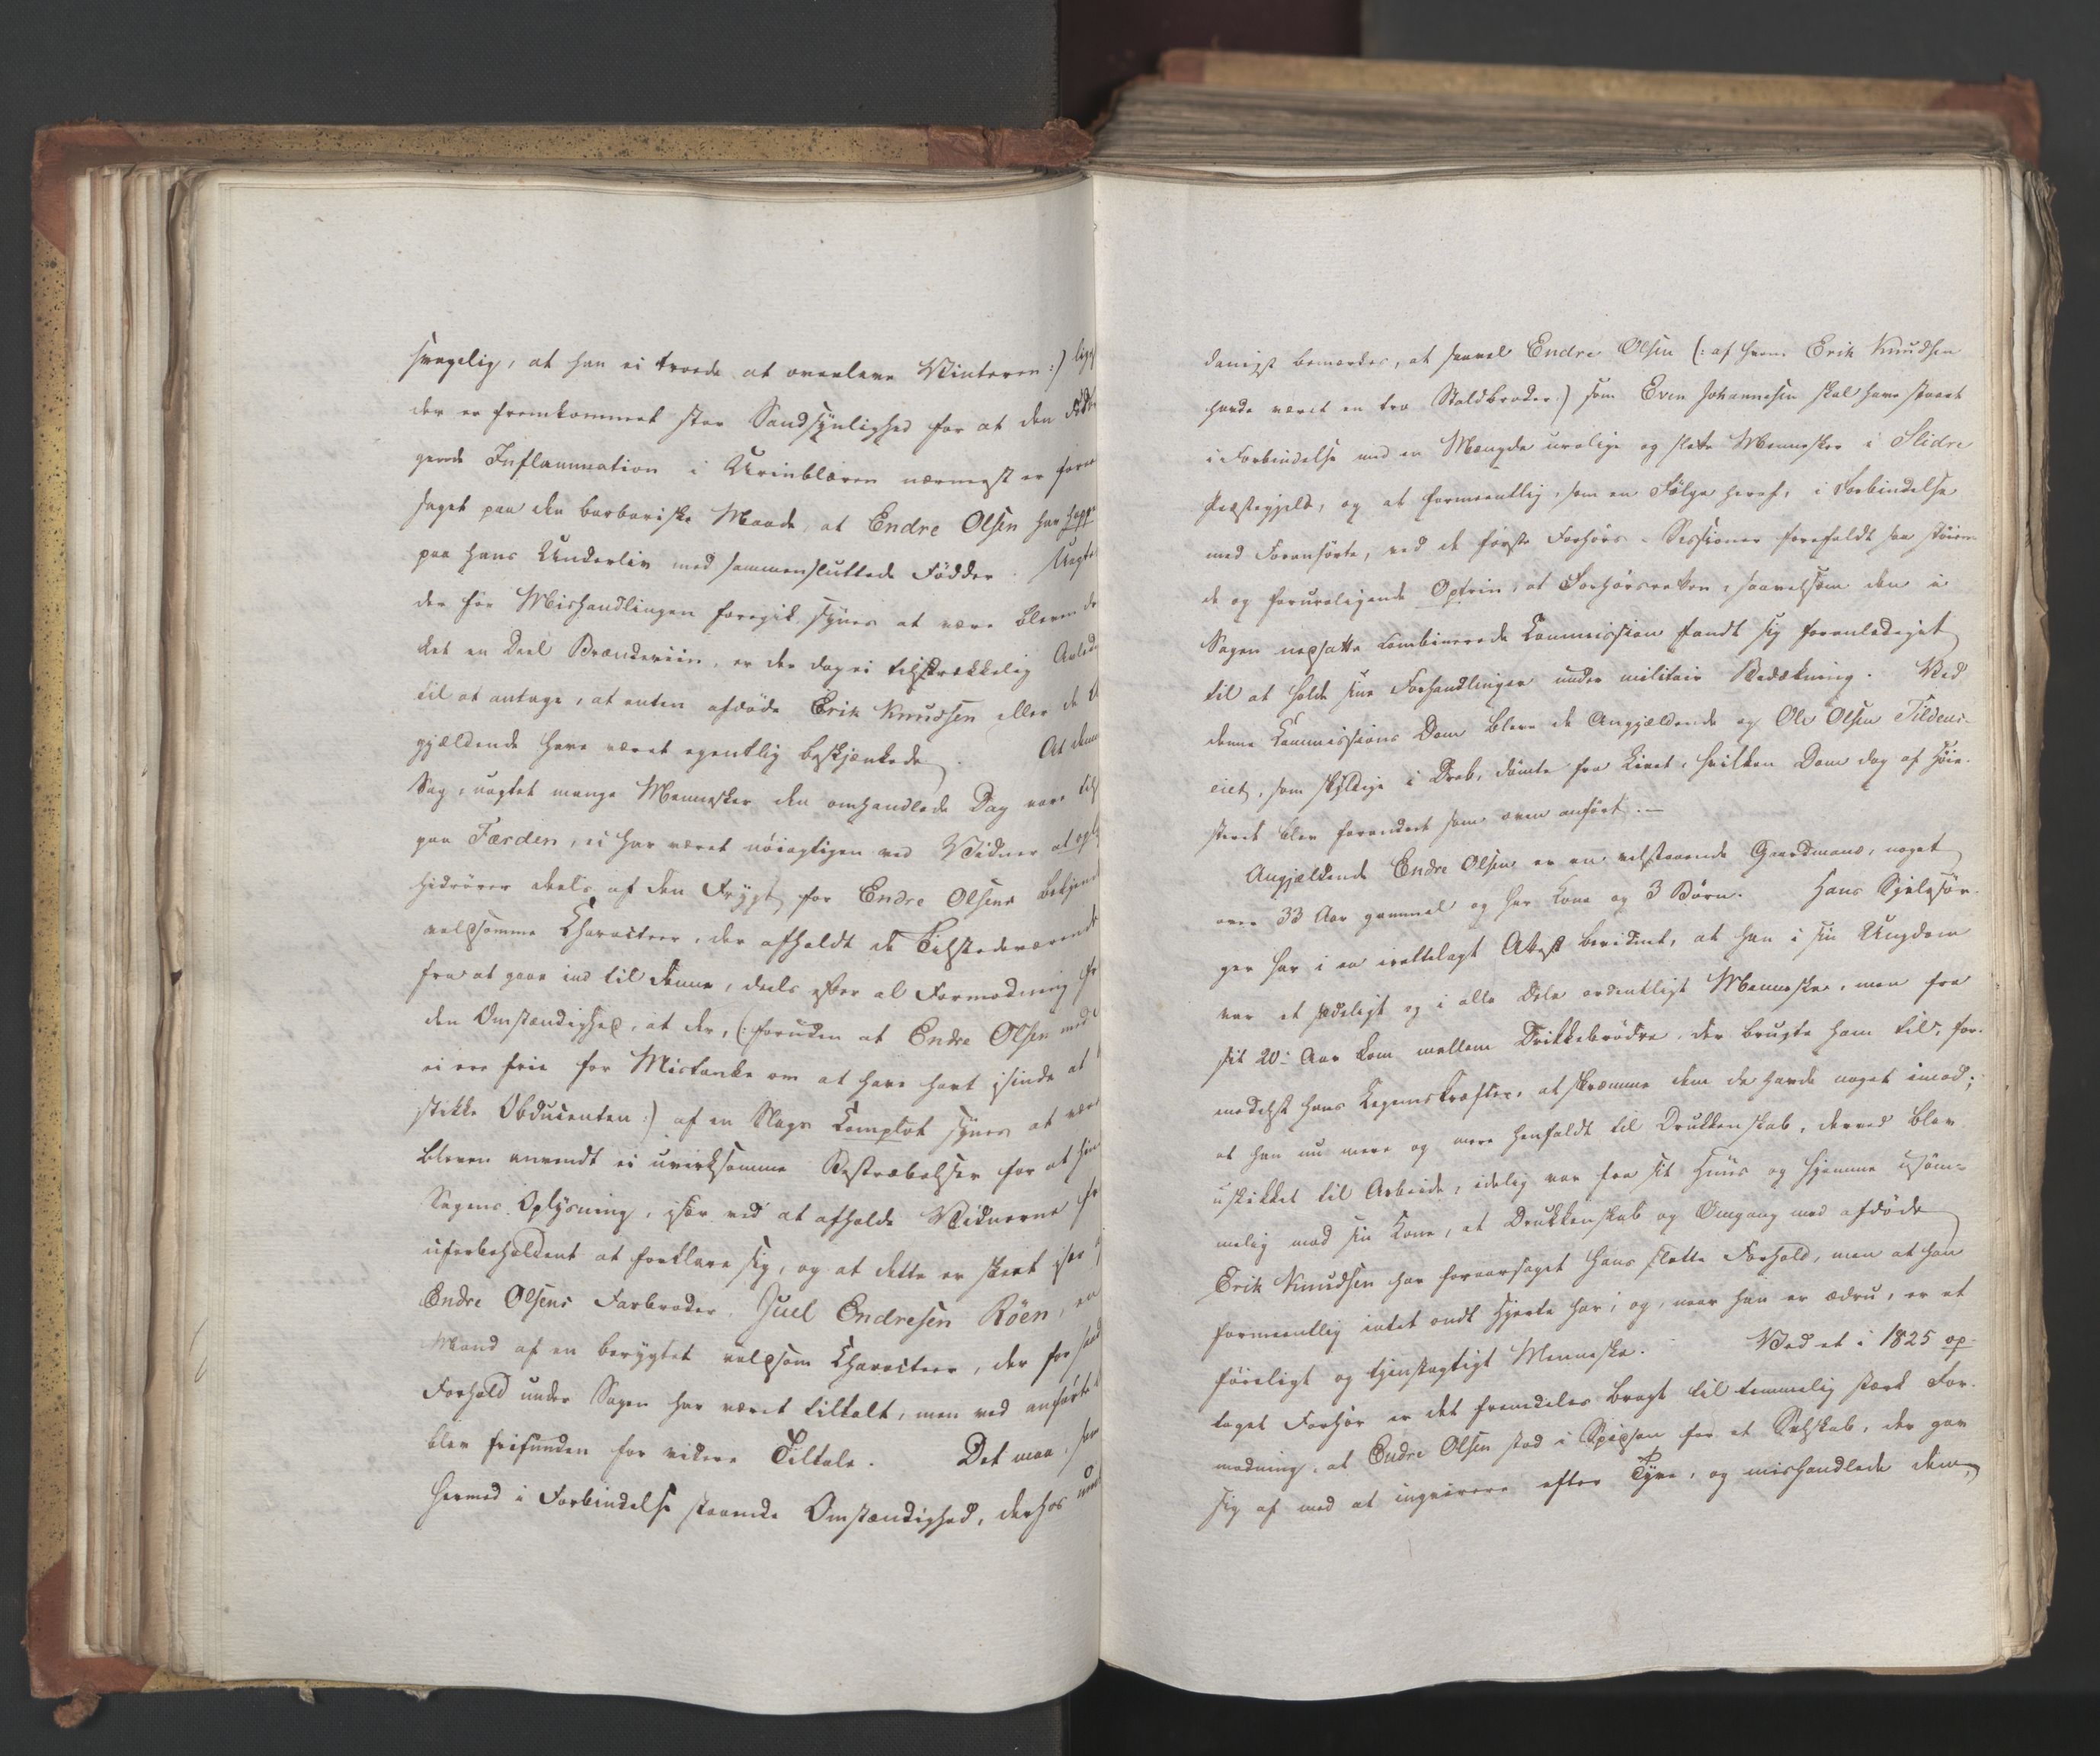 svagelig, at han ei troede at overleve Vinteren:)
der er fremkommet stor Sandsynlighed for at den
gende Inflammation i Urinblæren nærmest er
saget paa den barbariske Maade, at Endre Olsen har
paa hans Underliv med sammensluttede Födder.
der för Mishandlingen foregik, synes at være bleven
ket en Deel Brændeviin, er der dog ei tilstrækkelig
til at antage, at enten afdöde Erik Knudsen eller de
gjældende have været egentlig beskjænkede. At denne
Sag, uagtet mange Mennesker den omhandlede Dag vare
paa Færden, ei har været nöiagtigen ved Vidner at
hidrörer deels af den Frygt for Endre Olsens
voldsomme Characteer, der afholdt de Tilstedeværende
fra at gaae ind til denne, deels efter al Formodning
den Omstændighed, at der, (:foruden at Endre Olsen
ei ere frie for Mistanke om at have havt isinde at
stikke Obducenten:) af en Slags Complot synes at være
bleven anvendt ei uvirksomme Bestræbelser for at
Sagens Oplysning, især ved at afholde Vidnerne
uforbeholdent at forklare sig, og at dette er skeet især
Endre Olsens Farbroder, Juel Endresen Röen, en
Mand af en berygtet voldsom Characteer, der for
Forhold under Sagen har været tiltalt, men ved anförte
blev frifunden for videre Tiltale. Det maa,
hermed i Forbindelse staaende Omstændighed, derhos
danigst bemærkes, at saavel Endre Olsen (:af hvem Erik Knudsen
havde været en tro Staldbroder:) som Even Johannesen skal have staaet
i Forbindelse med en Mængde urolige og slette Mennesker i Slidre
Præstegjeld, og at formeentlig, som en Fölge heraf, i Forbindelse
med Foranförte, ved de förste Forhörs-Sessioner forefaldt saa stören-
de og foruroligende Optrin, at Forhörsretten, saavelsom den i
Sagen nedsatte combinerede Commission fandt sig foranlediget
til at holde sine Forhandlinger under militair Bedækning. Ved
denne Commissions Dom bleve de Angjældende og Ole Olsen Tildens-
eiet, som skyldige i Drab, dömte fra Livet, hvilken Dom dog af Höie-
steret blev forandret som oven anfört.—
Angjældende Endre Olsen er en velstaaende Gaardmand, noget
over 33 Aar gammel og har Kone og 3 Börn. Hans Sjelesör-
ger har i en irettelagt Attest bevidnet, at han i sin Ungdom
var et sædeligt og i alle Dele ordentligt Menneske, men fra
sit 20de Aar kom mellem Drikkebrödre, der brugte ham til, for-
medelst hans Legemskræfter, at skræmme dem de havde noget imod;
at han nu mere og mere henfaldt til Drukkenskab, derved blev
uskikket til Arbeide, idelig var fra sit Huus og Hjemme usöm-
melig mod sin Kone, at Drukkenskab og Omgang med afdöde
Erik Knudsen har foraarsaget hans slette Forhold, men at han
formeentlig intet ondt Hjerte har, og, naar han er ædru, er et
föieligt og tjenstagtigt Menneske. Ved et i 1825 op-
taget Forhör er det fremdeles bragt til temmelig stærk For-
modning, at Endre Olsen stod i Spidsen for et Selskab, der gav
sig af med at inqvirere efter Tyve, og mishandlede dem,